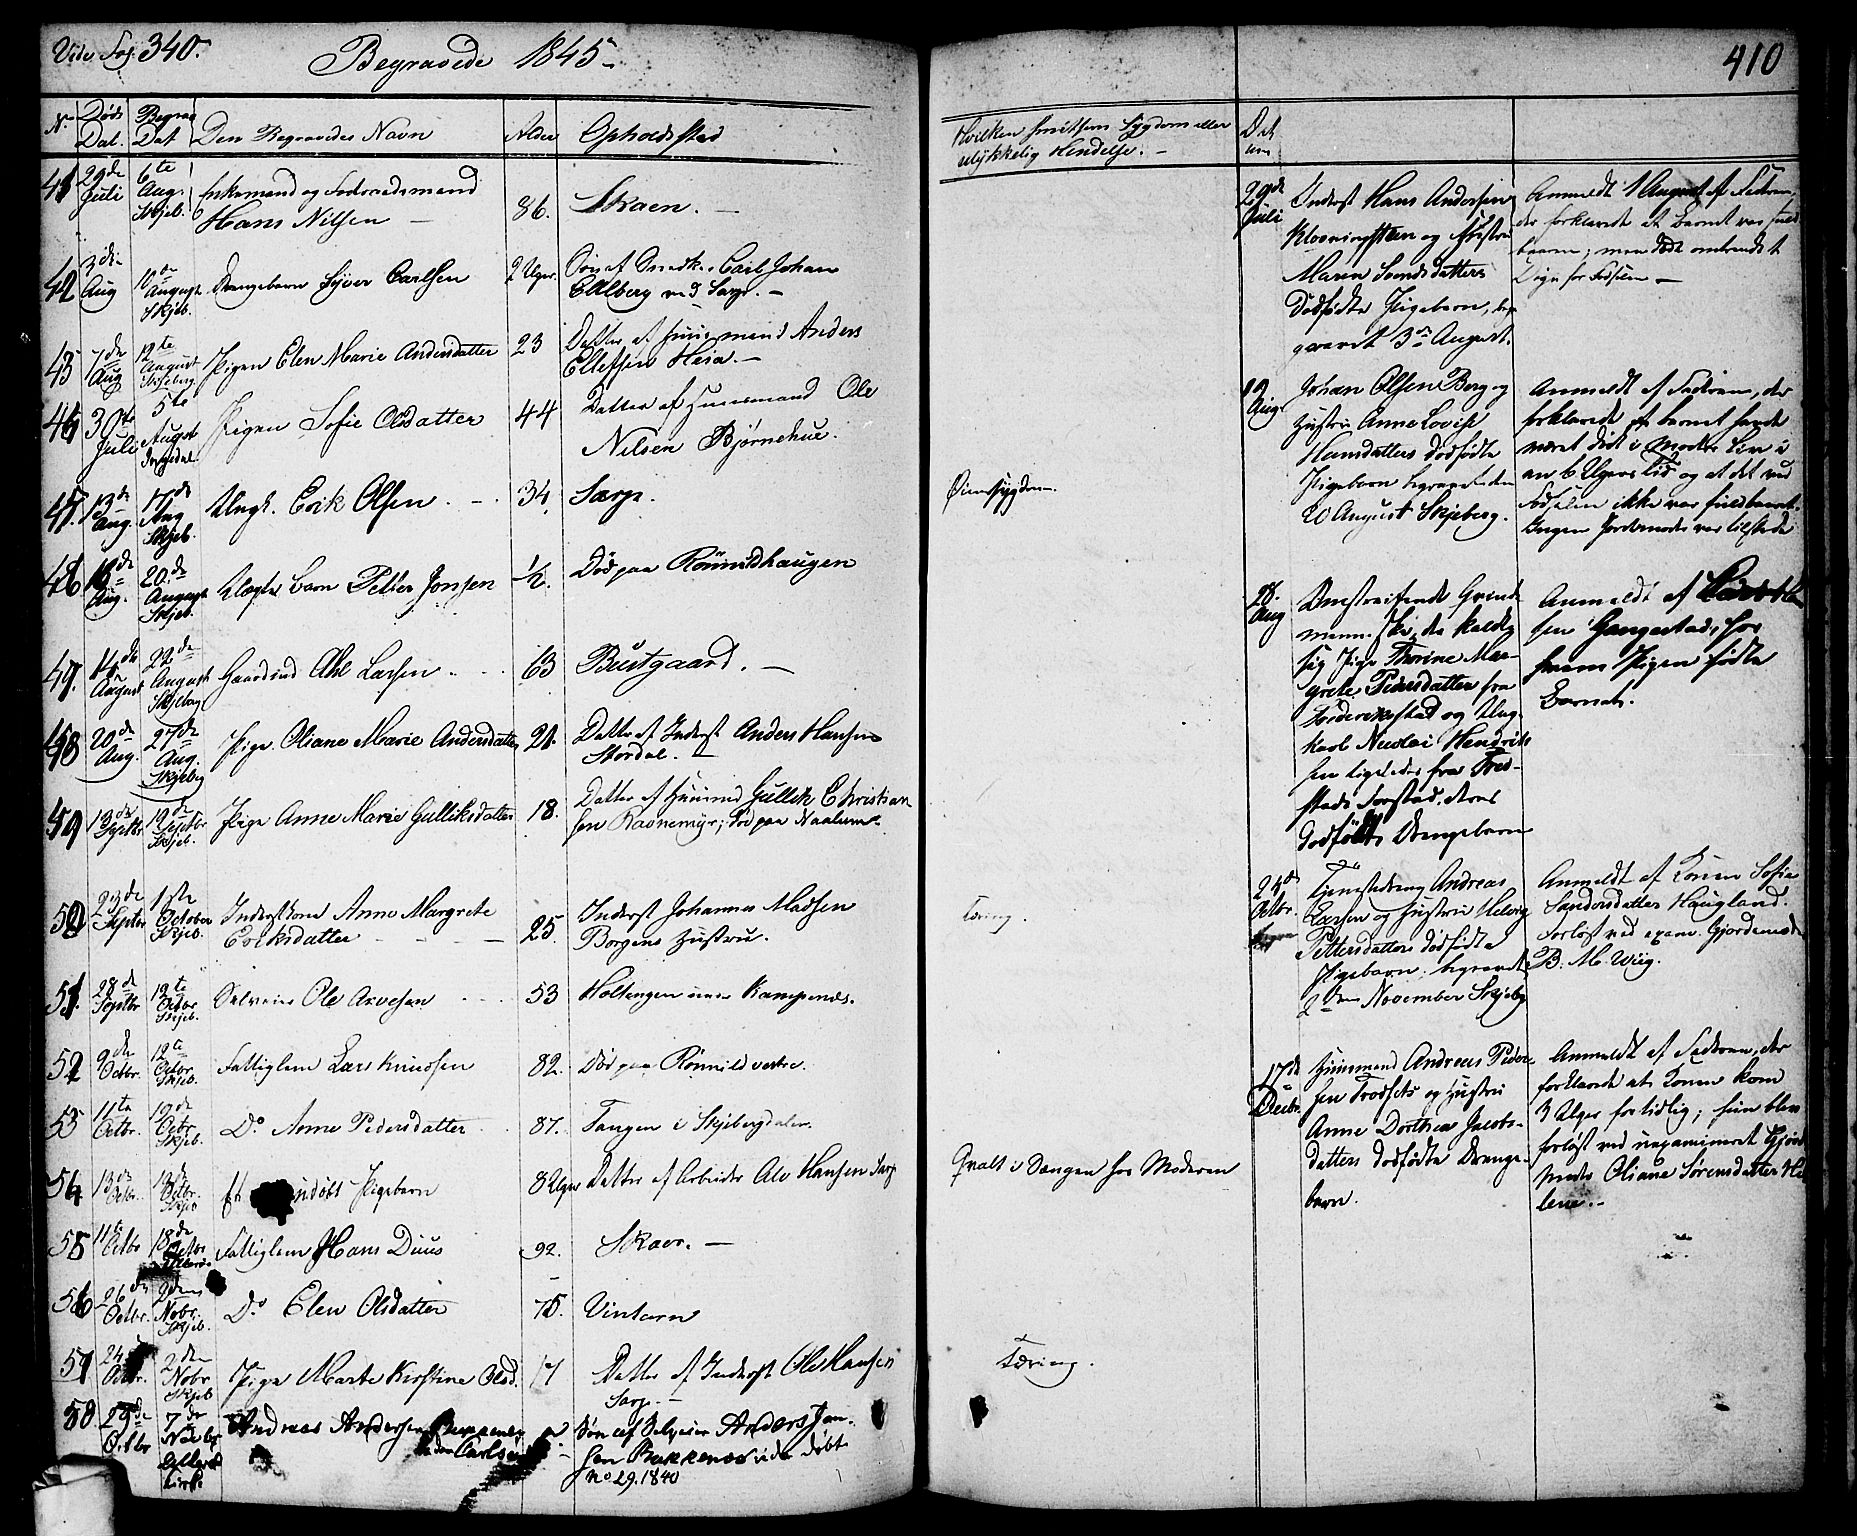 Vide Fol. 340.
Begravede 1845
410
No.
Døds Dat.
Begrav Dat
Den Begravedes Navn
Alder
Opholdssted
Hvilken smitsom Sygdom eller
ulykkelig Hendelse. -
Dat um
41 29de Juli 6te Aug. Skjeb. Enkemand og Føderaadsmand
Hans Nilsen - 86. Skaen. -
42 3die Aug 10de August Skjeb. Drengebarn Syver Carlsen 2 Uger. Søn af Smed Carl Johan
Edlberg ved Sarp. -
43 7de Aug 12te August Skjeberg Pigen Elen Marie Andersdatter 23 Datter af Huusmand Anders
Ellefsen Heia. -
44 30te Juli 5te August Ingedal Pigen Sofie Olsdatter 44 Datter af Huusmand Ole
Nilsen Bjørnehue.
45. 13de Aug. 17de Aug Skjeb. Ungk. Erik Olsen. - 34 Sarp.
46 16de Aug. 20de August Skjeb. Barn Petter Jonsen 1/2. Død paa Rønnildhaugen
47. 14de August 22de August Skjeberg Gaardmd Abel Larsen 63 Bustgaard. -
48 20de Aug. 27de Aug. Skjeberg Pige Oliane Marie Andersdatter 21. Datter af Inderst Anders Hansen
Stordal. -
49 13de Septbr 19de Septbr Skjeb. Pige Anne Marie Gulliksdatter 18. Datter af Huusmd Gullik Christian
sen Ravnemyr; død paa Naalum.
50 23de Septbr 1ste October Skjeb. Inderstkone Anne Margrete
Eriksdatter - - - 25. Inderst Johannes Madsen
Borgens Hustru.
51. 28de Septbr 12te Octbr. Skjeb. Ole Arvesen 53 Holtengen under Kampenes.
52 9de Octbr. 12te Octbr Skjeb. Fattiglem Lars Knudsen 82. Død paa Rønnild vestre.
53 11te Octbr. 19de Octbr Skjeb. Do Anne Pedersdatter 87. Tangen i Skjebergdalen.
54 13de Octbr. 19de Octbr. Skjeb Et udøbt Pigebarn 8 Uger Datter af Arbeider Ole Hansen Sarp
55 11te Octbr 18de Octbr Fattiglem Hans Duus 92. Skaer. -
56 26de Octbr. 2den Nobr. Skjeb. Do Elen Olsdatter 75. Vintern
57 24 Octbr. 2den Nobr Skjeb Pige Marte Kirstine Olsd. 17 Datter af Inderst Ole Hansen
Sarp. -
58. 29de Octbr 7de Novbr Kirke Andreas Andersen
Carlsen
Søn af Selveier Anders Jan-
sen Bakkenes vide døbt
No 29. 1840
Øiensygdom.
Tæring.
Qvalt i Sængen hos Moderen
Tæring.
29de Juli
Inderst Hans Andersen
Klavningsten og Hustru
Maren Svendsdatters
dødfødte Pigebarn, be-
gravet 3die August.
Anmeldt 1 August af Faderen,
der forklarede at Barnet var fuld
baaren; men død omtrendt
Døgn før Fødselen -
12 Aug.
Johan Olsen Berg og
Hustru Anne Lovise
Hansdatters dødfødte
Pigebarn begravet den
20 August Skjeberg.
Anmeldt af Faderen, der
forklarede at barnet havde
været død i Moders Liv i
en 6 Ugers Tid og at det ved
Fødselen ikke var fuldbaaret.
Ingen Jordemoder var tilstede
28. Aug
Omstreifende
kaldte
sig Pige Thorine Mar-
grete Pedersdatter fra
Frederikstad og Ung-
karl Nicolai Hendrik
sen ligeledes fra Fred-
stads Forstad, deres
dødfødte Drengebarn
Anmeldt af
sen Gangestad, hos
hvem Pigen fødte
Barnet.
25de Octbr.
Tjenestedreng Andreas
Larsen og Hustru Helvig
Pettersdatters dødfødte
Pigebarn, begravet
2den November Skjeberg
Anmeldt af Konen Sofie
Sandersdatter Haugland.
Forløst ved exam. Gjordemoder
B. M. Wiig.
17de Decbr.
Huusmand Andreas Peder
sen Trodsets og Hustru
Anne Dorthea Jacobs-
datters dødfødte Drenge-
barn.
Anmeldt af Faderen, der
forklarede at Konen kom
3 Uger for tidlig; hun blev
forløst ved uexamineret Gjorde
moder Oliane Sørensdatter He
lene. -